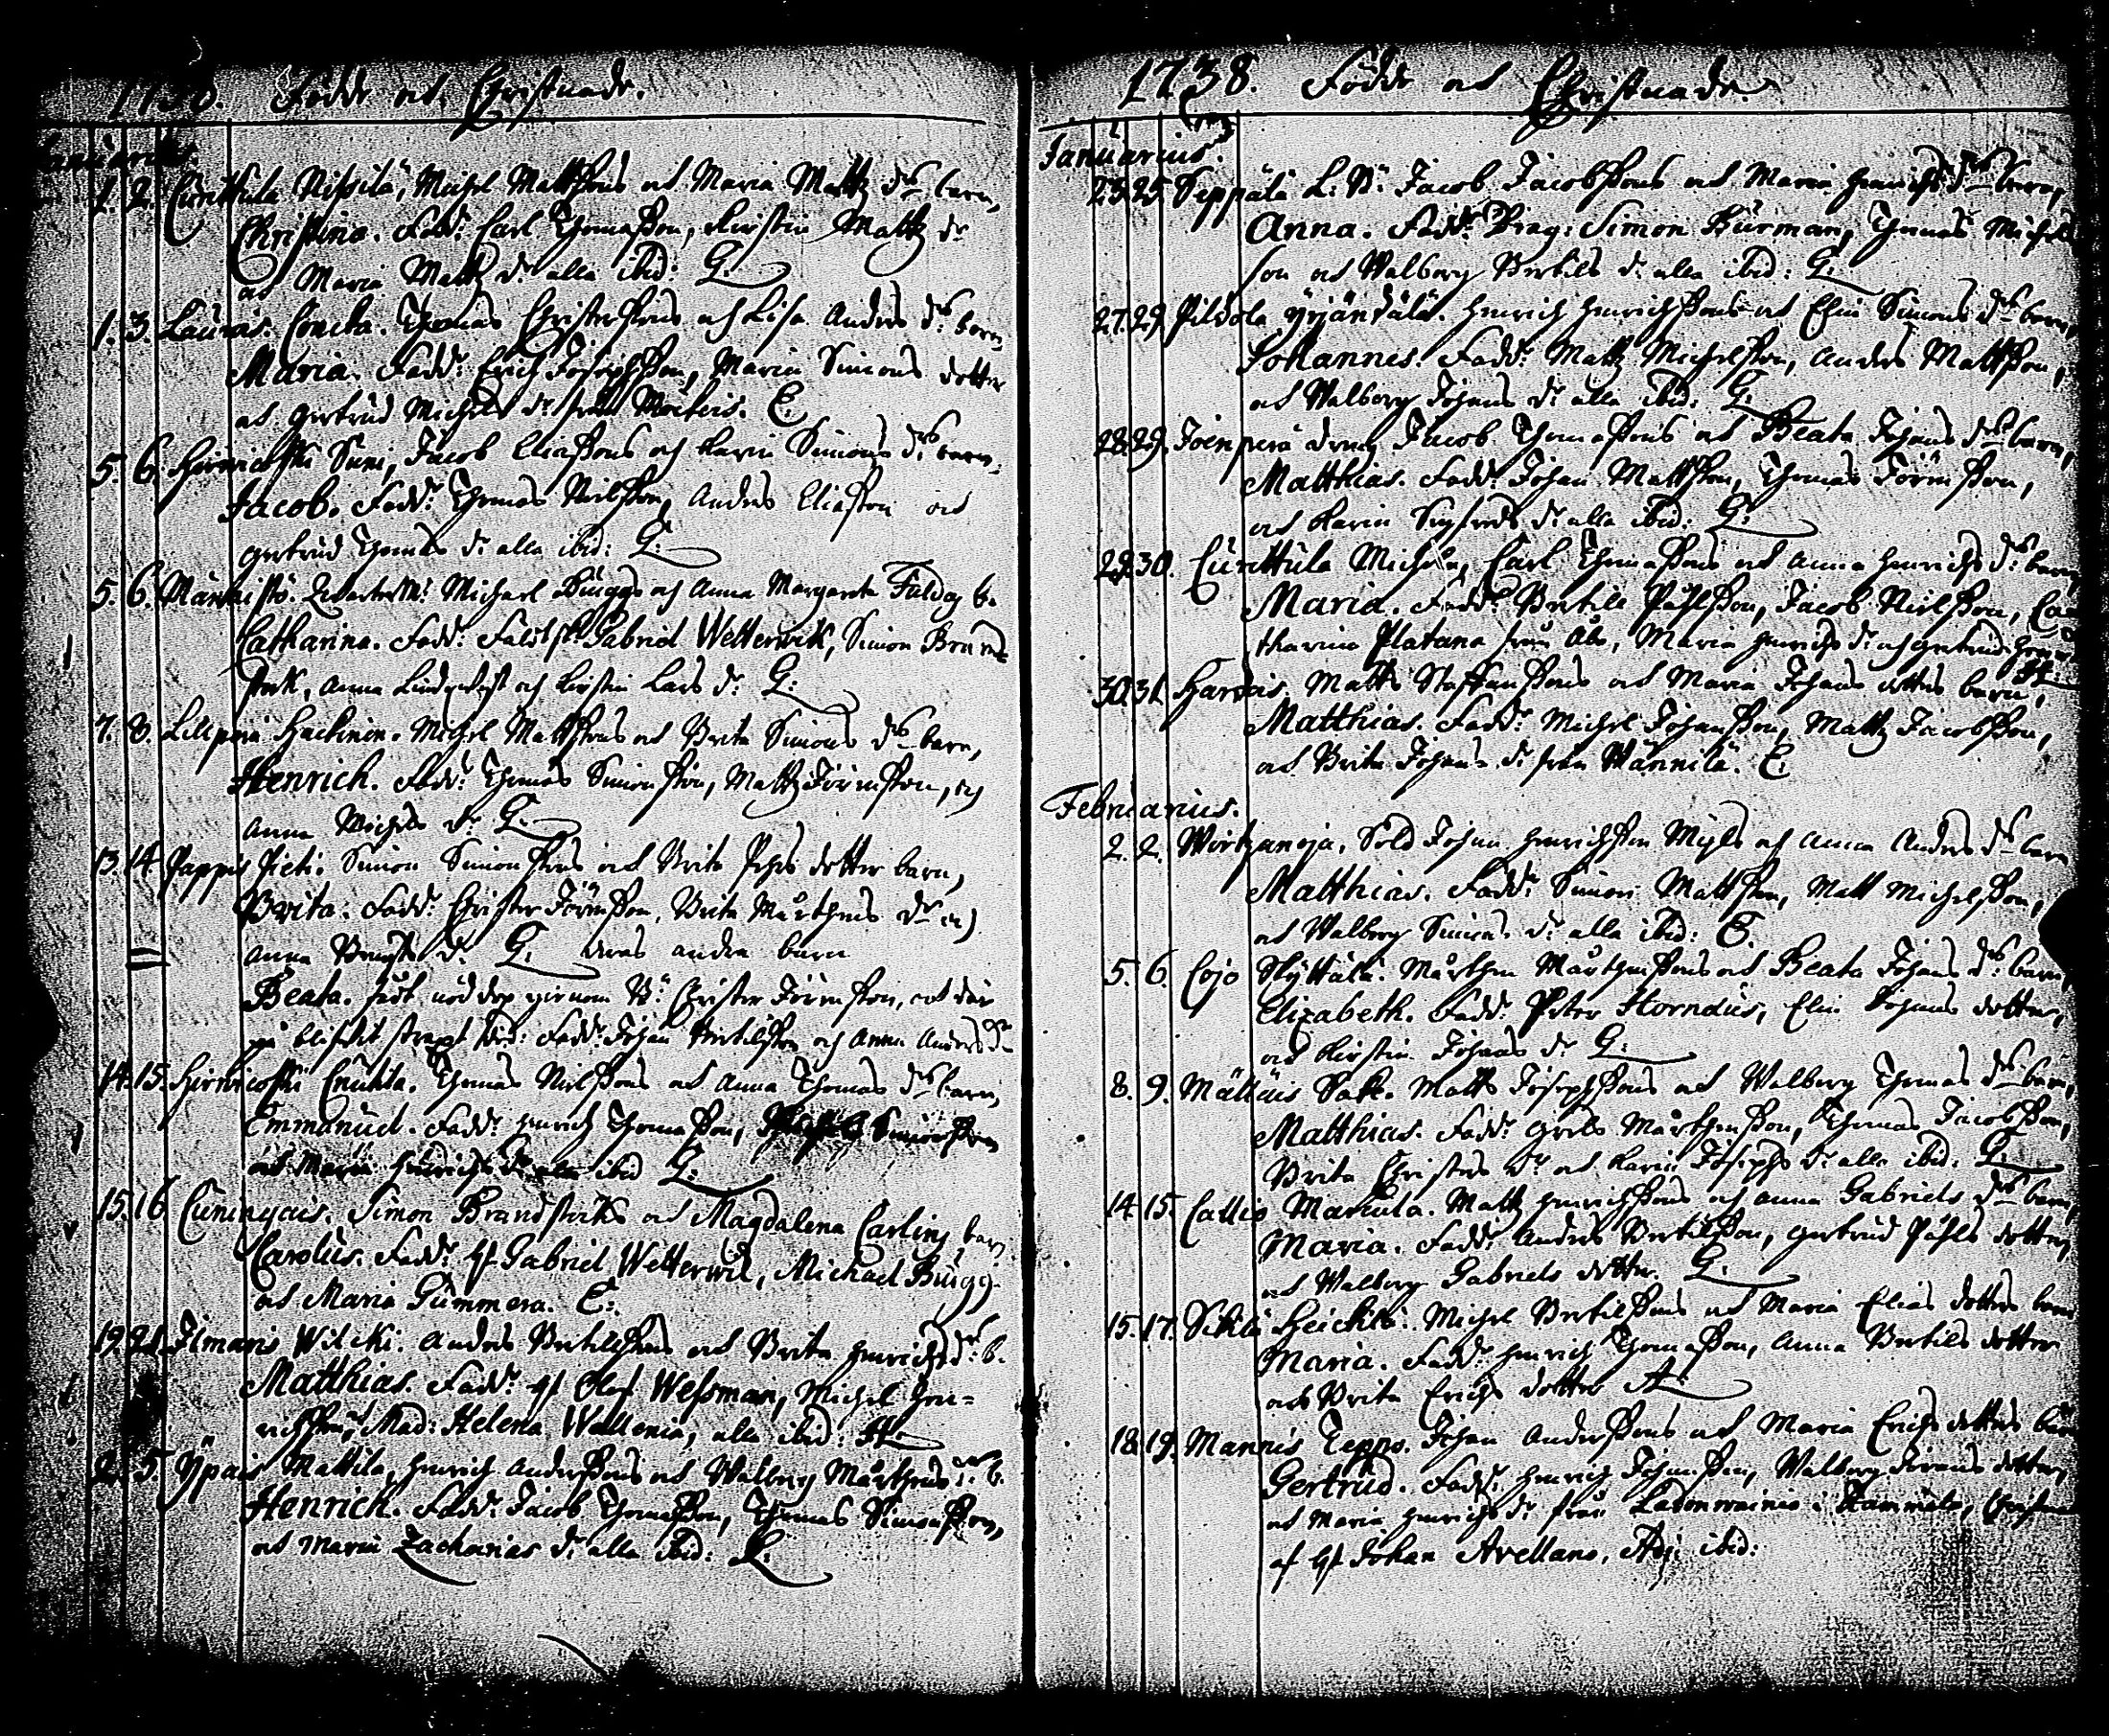 1738. Födde och Christnade.
Januarius.
1. 2. Cunttula Nissilä, Michel Mattssons och Maria Mattz drs barn,
Christina. Fadd: Carl Thomasson, Kirstin Mattz dr
och Maria Mattz dr alla ibid: G:
1. 3. Lauras. Thomas Christerssons och Lisa Anders drs barn
Maria. Fadd: Erich Josephsson, Maria Simons dotter
och Gertrud Michels dr från C.
5. 6. Suni, Jacob Eliassons och Karin Simons drs barn.
Jacob. Fadd: Thomas Nilsson, Anders Eliasson och
Gertrud Thomas dr alla ibid: G:
5. 6. Michael Buggs och Anna Margareta b.
Catharina. Fadd: Gabriel Wetterwik, Simon Brand-
stack, Anna Lindqwist och Kirstin Lars dr. G:
7. 8. Lillperä Hackinen. Michel Mattssons och Brita Simons drs barn,
Henrich. Fadd: Thomas Simonsson, Mattz Jöransson, och
Anna Michels dr. G.
13. 14. Pappis Pieti. Simon Simonssons och Brita dotter barn,
Brita. Fadd: Christer Jöransson, Brita Mårthens dr och
Anna dr. G. deras andra barn
Beata. nöddop genom Christer Jöransson, och där
på blifvit ibid: Fadd: Johan Bertilsson och Anna Anders dr
14. 15. Thomas Nilssons och Anna Thomas drs barn,
Emmanuel. Fadd: Henrich Thomasson, Simonsson
och Maria Henrichs dr alla ibid G:
15. 16. Cuningais. Simon Brandstacks och Magdalena Carlins barn
Carolus. Fadd: Hr Gabriel Wetterwik, Michael Bugg
och Maria Gummera. C:
19. 21. Ilmaris Wilcki. Anders Bertilssons och Brita Henrichs drs b.
Matthias. Fadd: Hr Olof Wessman, Michel Hen=
richsson, Mad: Helena Wallenia, alla ibid:
5. Ypais Mattila, Henrich Anderssons och Walborg Mårthens drs b.
Henrich. Fadd: Jacob Thomasson, Thomas Simonsson,
och Maria Zacharias dr alla ibid:
1738. Födde och Christnade.
Januarius.
23. 25. Seppälä L: B: Jacob Jacobssons och Maria Henrichs drs barn,
Anna. Fadd: Drag: Simon Burman, Thomas Michels
son och Walborg Bertils dr alla ibid: G:
27. 29. Pildola Yrjändälä. Henrich Henrichssons och Elin Simons drs barn,
Johannes. Fadd: Mattz Michelsson, Anders Mattsson,
och Walborg Johans dr alla ibid: G:
28. 29. Joenperä dreng Jacob Thomassons och Beata Johans drs barn,
Matthias. Fadd: Johan Mattsson, Thomas Jöransson,
och Karin Sigfreds dr alla ibid: G:
29. 30. Cunttula Carl Thomassons och Anna Henrichs drs barn
Maria. Fadd: Bertill Påhlsson, Jacob Nilsson, Ca=
tharina Platana från Åbo, Maria Henrichs dr och Gertrud
30. 31. Matts Staffanssons och Maria Johans dotters barn,
Matthias. Fadd: Michel Johansson, Mattz Jacobsson,
och Brita Johans dr från Wännilä. C:
Februarius.
2. 2. Wirtzanoja, Sold Johan Henrichsson och Anna Anders drs barn
Matthias. Fadd: Simon Mattsson, Matt Michelsson,
och Walborg Simons dr alla ibid:
5. 6. Cojo Skyttälä. Mårthen Mårthenssons och Beata Johans drs barn,
Elizabeth. Fadd: Peter Hornæus, Elin Johans dotter,
och Kirstin Johans dr G:
8. 9. Mällais Matts Josephssons och Walborg Thomas drs barn,
Matthias. Fadd: Grels Mårthensson, Thomas Jacobsson,
Brita Christers dr och Karin Josephs dr alla ibid: G.
14. 15. Callio Markula. Mattz Henrichssons och Anna Gabriels drs barn,
Maria. Fadd: Anders Bertilsson, Gertrud Påhls dotter,
och Walborg Gabriels dotter. G:
15. 17. Sikilä Heickilä. Michel Bertilssons och Maria Elias dotters barn
Maria. Fadd: Henrich Thomasson, Anna Bertils dotter
och Brita Erichs dotter
18. 19. Mannis Teppo. Johan Anderssons och Maria Erichs dotters barn
Gertrud. Fadd: Henrich Johansson, Walborg Jörans dotter,
och Maria Henrichs dr från i Christnad
af Hr Johan Avellano, Adj: ibid: